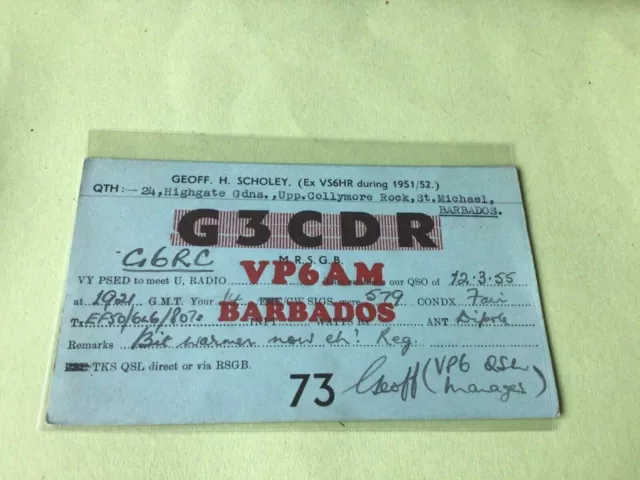 GEOFF. H. SCHOLEY. (Ex VS6HR during 1951/52.)
QTH :— 24, Highgate Gdns., Upp. Collymore Rock, St. Michael,
BARBADOS.
G3CDR
M.R.S.G.B.
G6RC
VP6AM
VY PSED to meet U, RADIO our QSO of 12.3.55
at 1921 G.M.T. Your 14 CW SIGS were 579 CONDX Fair
BARBADOS
Tx EF50/6L6/807s ANT Dipole
Remarks Bit warmer now eh! Reg.
TKS QSL direct or via RSGB.
73 Geoff (VP6 QSL
Manager)